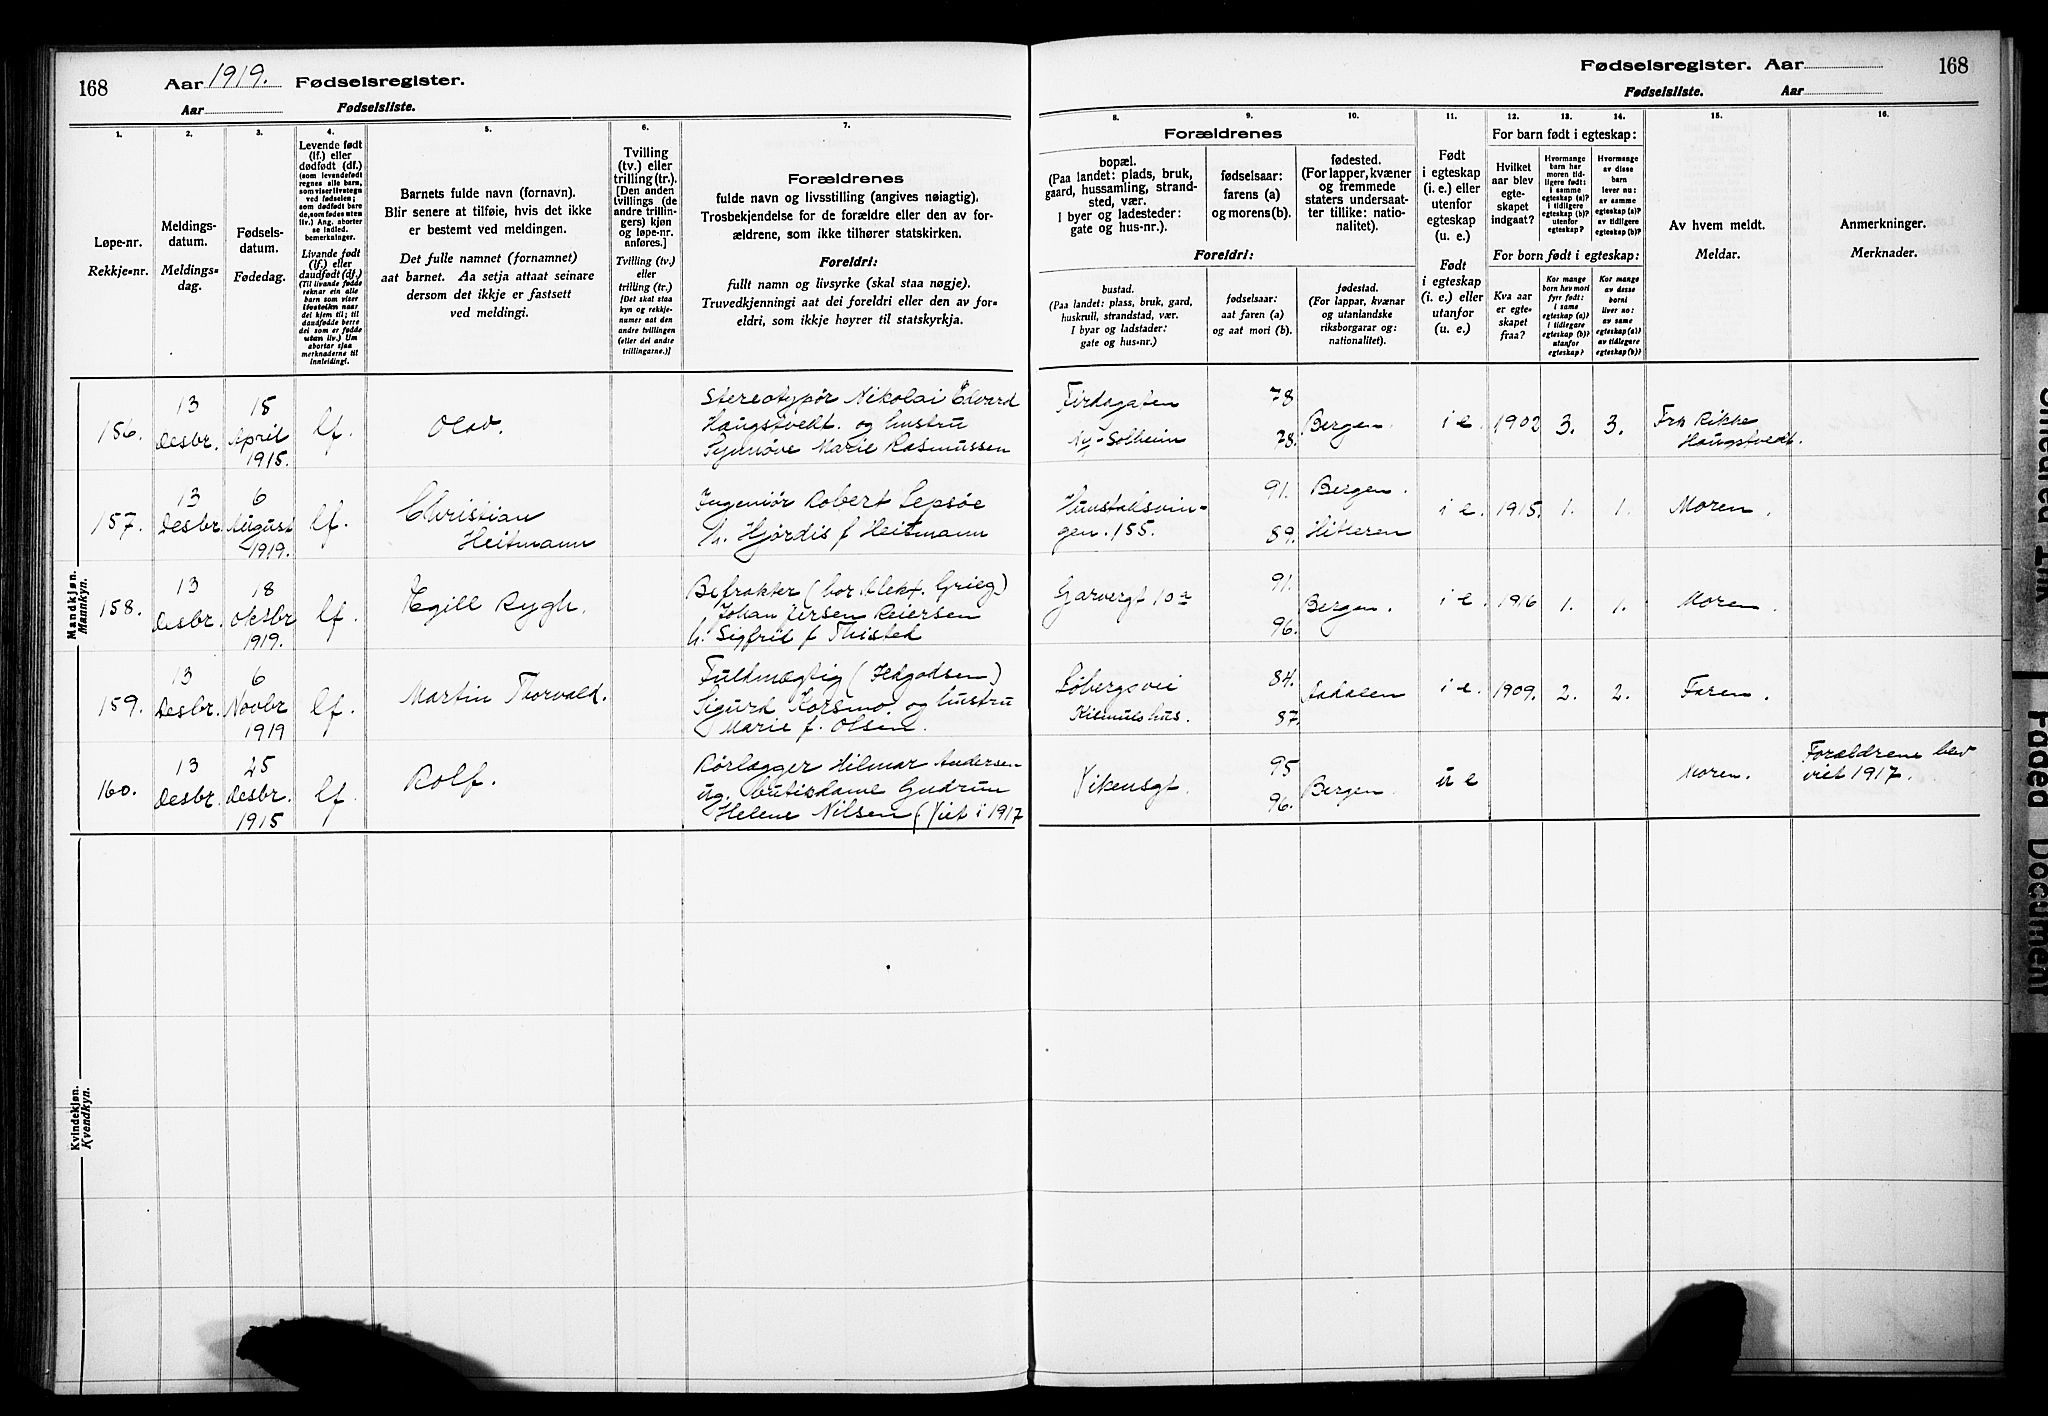 168
Aar 1919. Fødselsregister.
Aar Fødselsliste.
Fødselsregister. Aar
168
Fødselsliste. Aar
1.
Løpe-nr.
Rekkje-nr.
2.
Meldings-
datum.
Meldings-
dag.
3.
Fødsels-
datum.
Fødedag.
4.
Levende født
(lf.) eller
dødfødt (df.)
(som levendefødt
regnes alle barn,
som viser livstegn
ved fødselen;
som dødfødt bare
de, som fødes uten
liv.) Ang. aborter
se indled.
bemerkninger.
Livande født
(lf.) eller
daudfødt (df.)
(Til livande fødde
reknar ein alle
barn som viser
livsteikn naar
dei kjem til; til
daudfødde berre
dei som er fødde
utan liv.) Um
abortar sjaa
merknaderne til
innleiding!
5.
Barnets fulde navn (fornavn).
Blir senere at tilføie, hvis det ikke
er bestemt ved meldingen.
Det fulle namnet (fornamnet)
aat barnet. Aa setja attaat seinare
dersom det ikkje er fastsett
ved meldingi.
6.
Tvilling
(tv.) eller
trilling (tr.).
[Den anden
tvillings (de
andre trillin-
gers) kjøn
og løpe-nr.
anføres.]
Tvilling (tv.)
eller
trilling (tr.)
[Det skal staa
kyn og rekkje-
numer aat den
andre tvillingen
(eller dei andre
trillingarne.)]
7.
Forældrenes
fulde navn og livsstilling (angives nøiagtig).
Trosbekjendelse for de forældre eller den av for-
ældrene, som ikke tilhører statskirken.
Foreldri:
fullt namn og livsyrke (skal staa nøgje).
Truvedkjenningi aat dei foreldri eller den av for-
eldri, som ikkje høyrer til statskyrkja.
Forældrenes
8.
bopæl.
(Paa landet: plads, bruk,
gaard, hussamling, strand-
sted, vær.
I byer og ladesteder:
gate og hus-nr.).
9.
fødselsaar:
farens (a)
og morens (b).
10.
fødested.
(For lapper, kvæner
og fremmede
staters undersaat-
ter tillike: natio-
nalitet).
Foreldri:
bustad.
(Paa landet: plass, bruk, gard,
huskrull, strandstad, vær.
I byar og ladstader:
gate og hus-nr.)
fødselsaar:
aat faren (a)
og aat mori (b).
fødestad.
(For lappar, kvænar
og utanlandske
riksborgarar og:
nationalitet).
11.
Født
i egteskap
(i. e.) eller
utenfor
egteskap
(u. e.)
Fødd
i egteskap
(i. e.) eller
utanfor
(u. e.)
12. 13. 14.
For barn født i egteskap:
Hvilket
aar blev
egte-
skapet
indgaat?
Hvormange
barn har
moren tid-
ligere født:
i samme
egteskap (a)?
i tidligere
egteskap (b)?
utenfor
egteskap?
Hvormange
av disse
barn
lever nu:
av samme
egteskap (a)?
av tidligere
egteskap (b)?
For born født i egteskap:
Kva aar
er egte-
skapet
fraa?
Kor mange
born hev mori
fyrr født:
i same
egteskap (a)?
i tidlegare
egteskap (b)?
utanfor
egteskap?
Kor mange
av desse
borni
liver no:
av same
egteskap (a)?
av tidlegare
egteskap (b)?
15.
Av hvem meldt.
Meldar.
16.
Anmerkninger.
Merknader.
Mandkjøn.
Mannkyn.
156. 13 Desbr. 15 April 1915. lf. Olav.
Stereotypør Nikolai Edvard
Haugstvedt. og hustru
Synnøve Marie Rasmussen
Firdagaten
Ny-Solheim
78
78.
Bergen. i e. 1902 3. 3. Fru Rikke
Haugstvedt.
157. 13 Desbr. 6 August 1919. lf. Christian
Heitmann
Ingeniør Robert Lepsøe
h. Hjørdis f Heitmann
gen. 155.
91.
89.
Bergen.
Hitteren
i e. 1915. 1. 1. Moren.
158. 13 Desbr. 18 Oktbr 1919. lf. Egill Rygh.
Befrakter (hos Alexf. Grieg)
Johan Jersen Reiersen
h. Sigfrid f Thisted
10a
91.
96.
Bergen. i e. 1916 1. 1. Moren.
159. 13 Desbr. 6 Novbr 1919 lf. Martin Thorvald.
Fuldmægtig (Ildgodsen)
Sigurd Korsmo. og hustru
Marie f. Olsen.
Løbergsvei
84.
87.
i e. 1909. 2. 2. Faren.
160. 13 Desbr. 25 Desbr. 1915 lf. Rolf.
Rørlægger Hilmar Andersen
ug. butikdame Gudrun
Helene Nilsen (Viet i 1917
Vikensgt.
95
96.
Bergen. u e Moren.
Forældrene blev
viet 1917.
Kvindekjøn.
Kvendkyn.
Skeured Ink
Faded Document